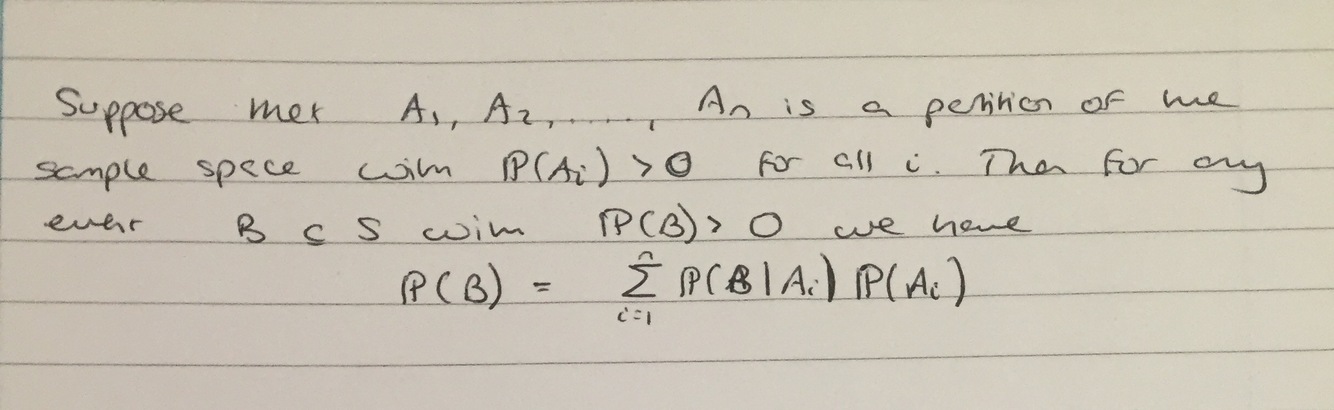 Suppose that A₁, A₂, ....., Aₙ is a partition of the
sample space with ℙ(Aᵢ) > 0 for all i. Then for any
event B ⊂ S with ℙ(B) > 0 we have
ℙ(B) = ∑ᵢ₌₁ⁿ ℙ(B|Aᵢ) ℙ(Aᵢ)